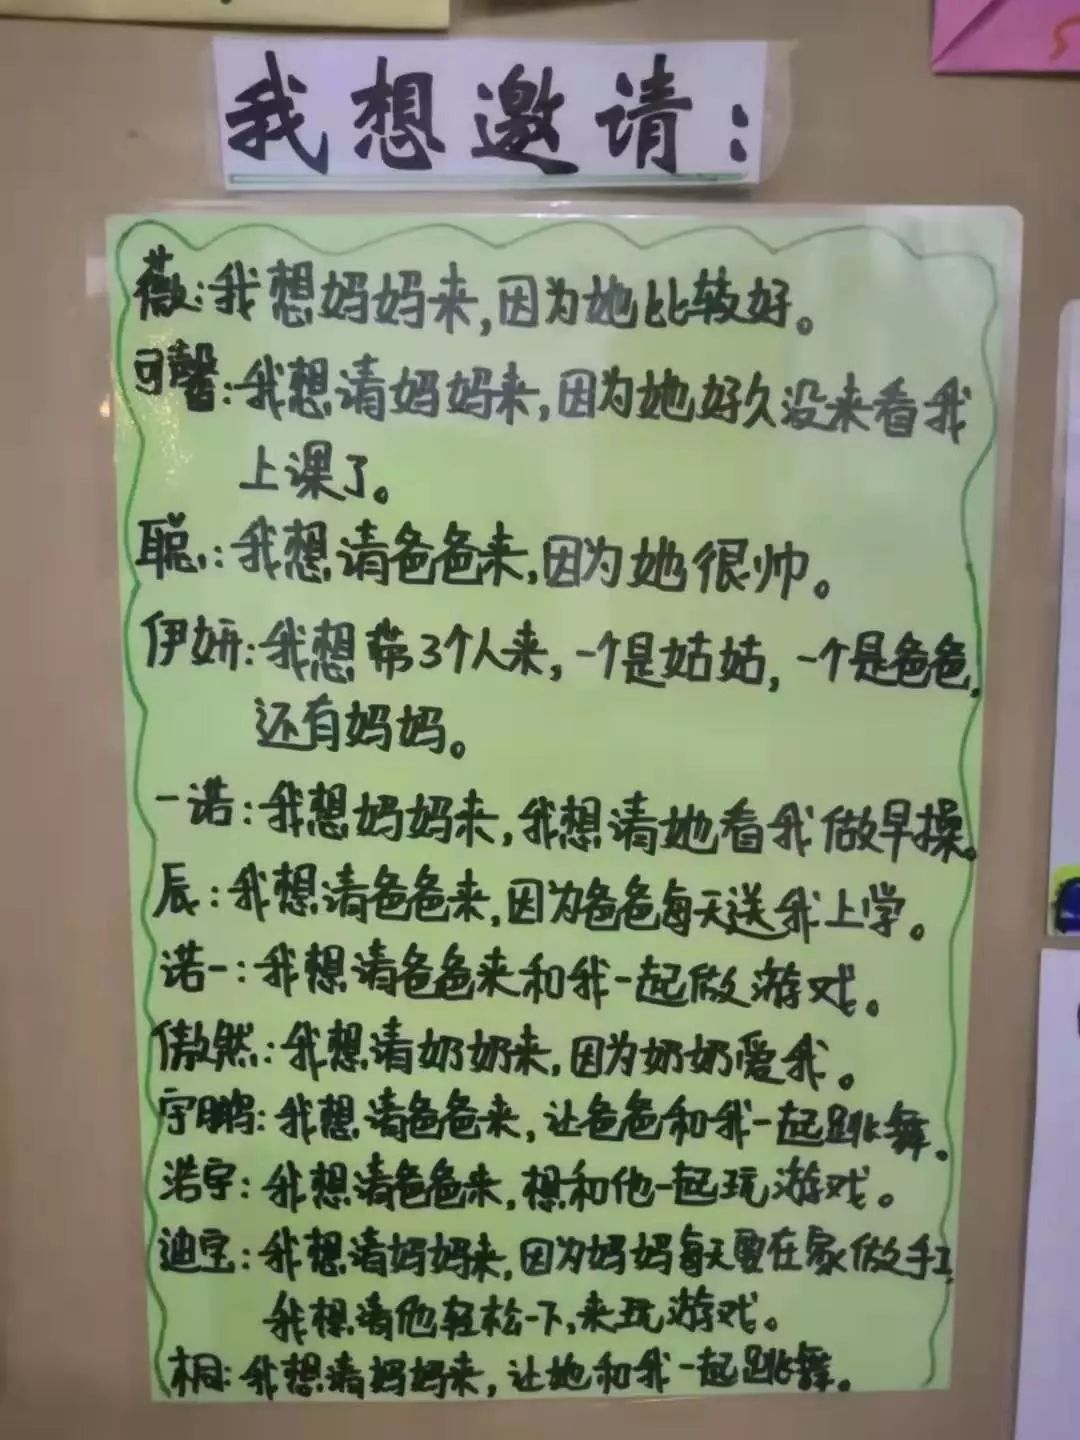 我想邀请：
薇：我想妈妈来，因为她比较好。
可馨：我想请妈妈来，因为她好久没来看我
上课了。
聪：我想请爸爸来，因为她很帅。
伊妍：我想带3个人来，一个是姑姑，一个是爸爸，
还有妈妈。
一诺：我想妈妈来，我想请她看我做早操。
辰：我想请爸爸来，因为爸爸每天送我上学。
诺一：我想请爸爸来和我一起做游戏。
傲然：我想请奶奶来，因为奶奶爱我。
宇鹏：我想请爸爸来，让爸爸和我一起跳舞。
浩宇：我想请爸爸来，想和他一起玩游戏。
迪宝：我想请妈妈来，因为妈妈每天要在家做手工，
我想请他轻松一下，来玩游戏。
桐：我想请妈妈来，让她和我一起跳舞。